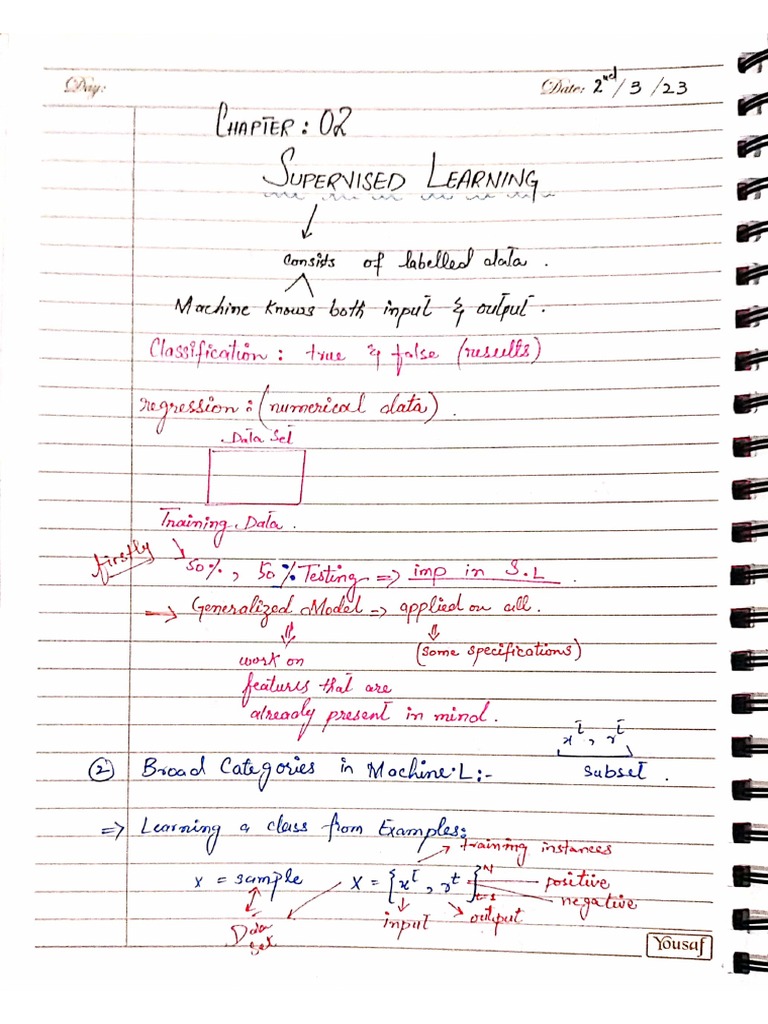 Day:
Date: 2nd/3/23
CHAPTER: 02
SUPERVISED LEARNING
Consists of labelled data.
Machine knows both input & output.
Classification: true & false (results)
regression: (numerical data).
Data Set
Training Data.
firstly
50%, 50% Testing => imp in S.L.
→ Generalized Model => applied on all.
work on
(some specifications)
features that are
already present in mind.
x^t, r^t
② Broad Categories in Machine.L:-
subset.
=> Learning a class from Examples:
training instances
x = sample
X = {x^t, r^t}^N_{t=1}
positive
negative
Data set
input
output
Yousaf